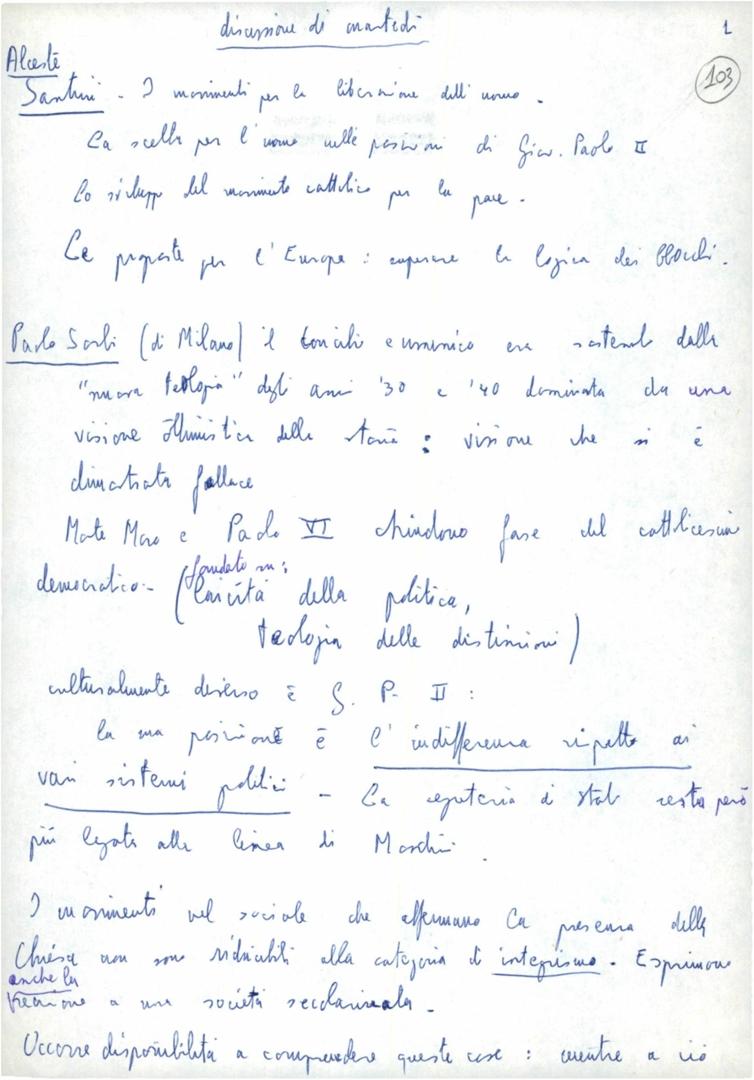 discussione di martedì
1
103
Alceste
Santini - I movimenti per la liberazione dell'uomo.
La scelta per l'uomo nelle posizioni di Giov. Paolo II
Lo sviluppo del movimento cattolico per la pace.
Le proposte per l'Europa: superare la logica dei blocchi.
Paolo Sorbi (di Milano) il Concilio ecumenico era sostenuto dalla
"nuova teologia" degli anni '30 e '40 dominata da una
visione ottimistica della storia: visione che si è
dimostrata fallace
Morte Moro e Paolo VI chiudono fase del cattolicesimo
democratico - (fondato su:
laicità della politica,
teologia delle distinzioni)
culturalmente diverso è G. P. II:
la sua posizione è l'indifferenza rispetto ai
vari sistemi politici - La segreteria di stato resta però
più legata alla linea di
I movimenti nel sociale che affermano la presenza della
Chiesa non sono riducibili alla categoria di integrismo. Esprimono
anche la
reazione a una società secolarizzata.
Occorre disponibilità a comprendere queste cose: mentre a ciò